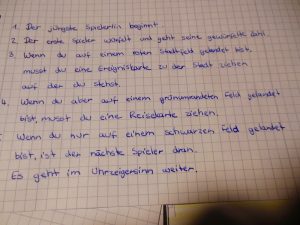 1. Der jüngste Spieler/in beginnt.
2. Der erste Spieler würfelt und geht seine gewürfelte Zahl.
3. Wenn du auf einem roten Stadtfeld gelandet bist,
musst du eine Ereigniskarte zu der Stadt ziehen
auf der du stehst.
4. Wenn du aber auf einem grünumrandeten Feld gelandet
bist, musst du eine Reisekarte ziehen.
Wenn du nur auf einem schwarzen Feld gelandet
bist, ist der nächste Spieler dran.
Es geht im Uhrzeigersinn weiter.